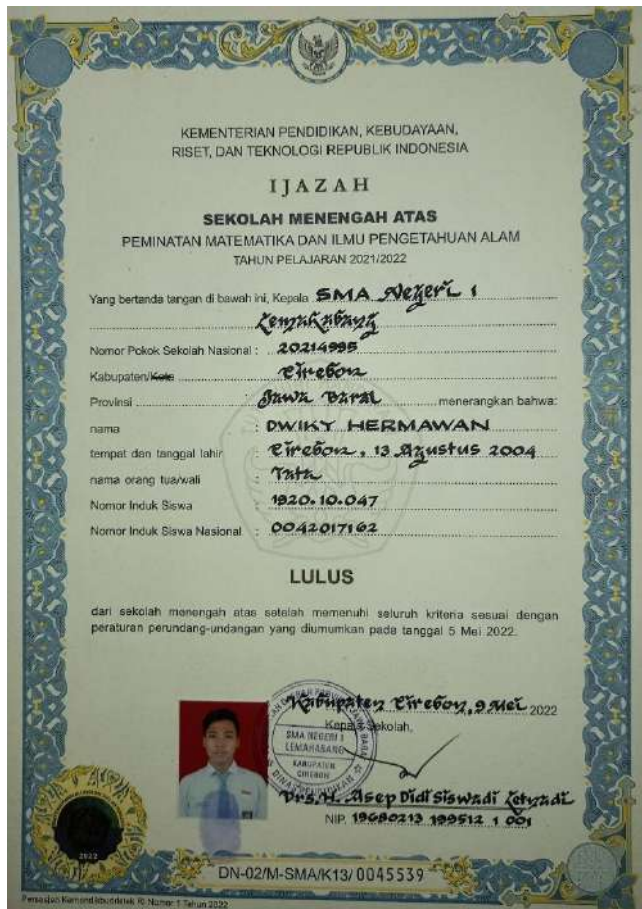 KEMENTERIAN PENDIDIKAN, KEBUDAYAAN,
RISET, DAN TEKNOLOGI REPUBLIK INDONESIA
IJAZAH
SEKOLAH MENENGAH ATAS
PEMINATAN MATEMATIKA DAN ILMU PENGETAHUAN ALAM
TAHUN PELAJARAN 2021/2022
Yang bertanda tangan di bawah ini, Kepala SMA Negeri 1
Lemahabang
Nomor Pokok Sekolah Nasional : 20214995
Kabupaten/Kota Cirebon
Provinsi : Jawa Barat menerangkan bahwa:
nama : DWIKY HERMAWAN
tempat dan tanggal lahir : Cirebon, 13 Agustus 2004
nama orang tua/wali : Tata
Nomor Induk Siswa : 1920.10.047
Nomor Induk Siswa Nasional : 0042017162
LULUS
dari sekolah menengah atas setelah memenuhi seluruh kriteria sesuai dengan
peraturan perundang-undangan yang diumumkan pada tanggal 5 Mei 2022.
Kabupaten Cirebon, 9 Mei 2022
Kepala Sekolah,
SMA NEGERI 1
LEMAHABANG
KABUPATEN
CIREBON
DINAS PENDIDIKAN
Drs. H. Asep Didi Siswadi
NIP. 19680213 199512 1 001
2022
DN-02/M-SMA/K13/ 0045539
Nomor 1 Tahun 2022